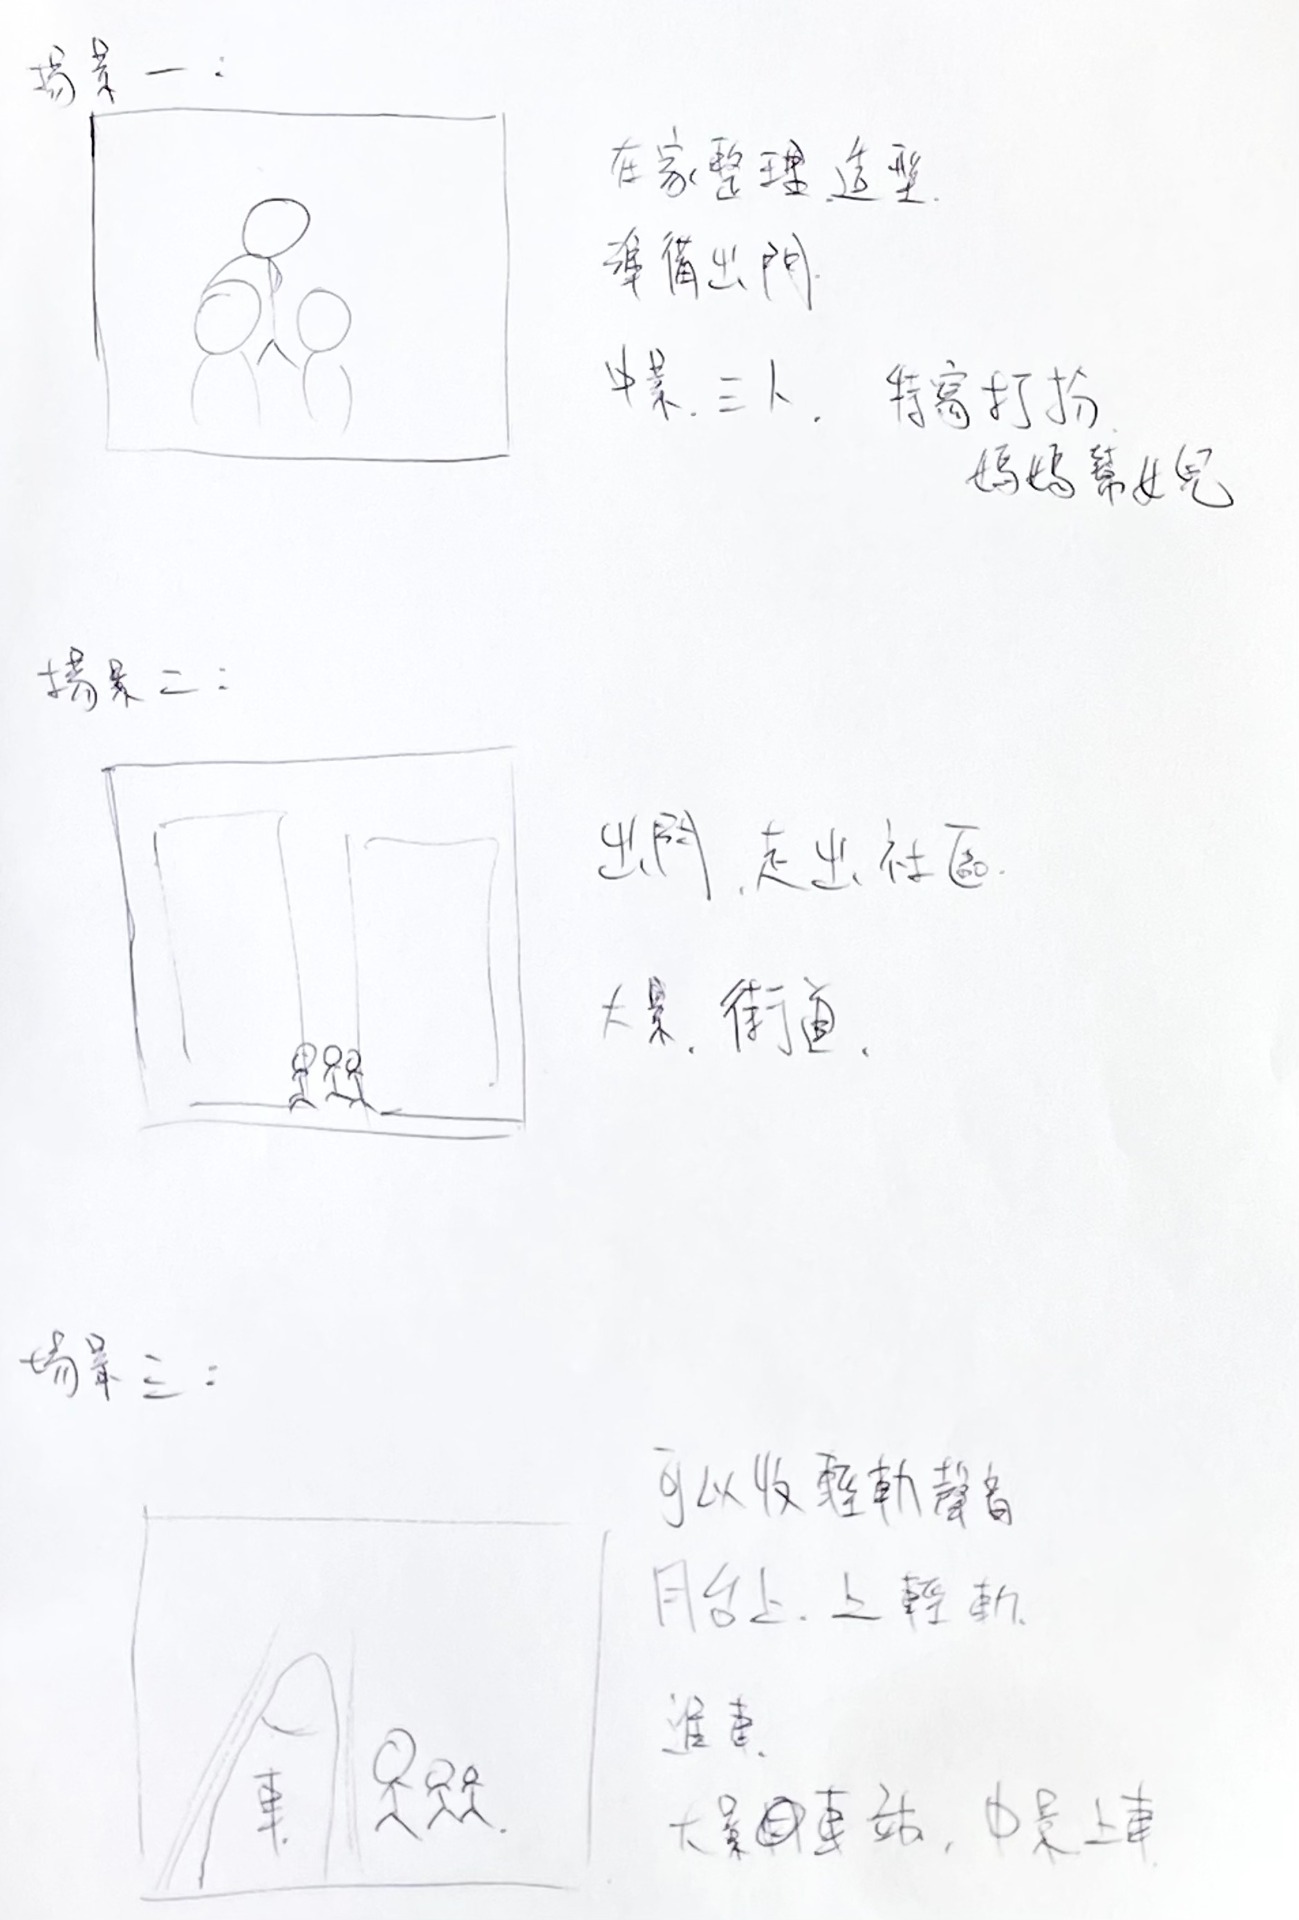 場景一：
在家整理造型.
準備出門.
中景.三人. 特寫打扮.
媽媽幫女兒
場景二：
出門.走出社區.
大景.街道.
場景三：
可以收輕軌聲音
月台上.上輕軌.
進車.
大景車站.中景上車.
車.